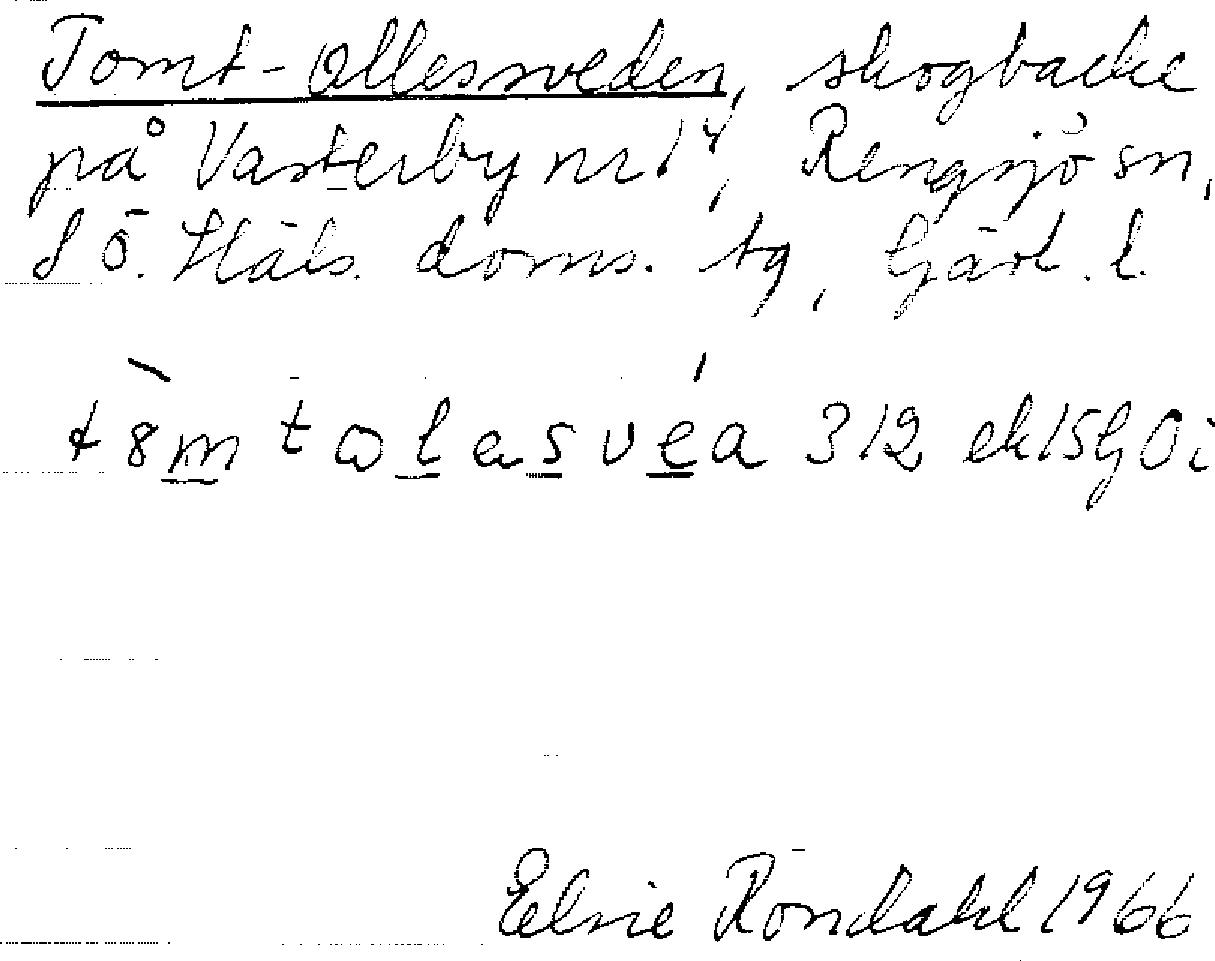 Tomt-Ollessveden, skogbacke
på Västerby nr 14, Rengsjö sn,
S Ö. Häls. doms. tg, Gävl. l.
t8mtωlesvea 312 ek15GOi
Elsie Röndahl 1966